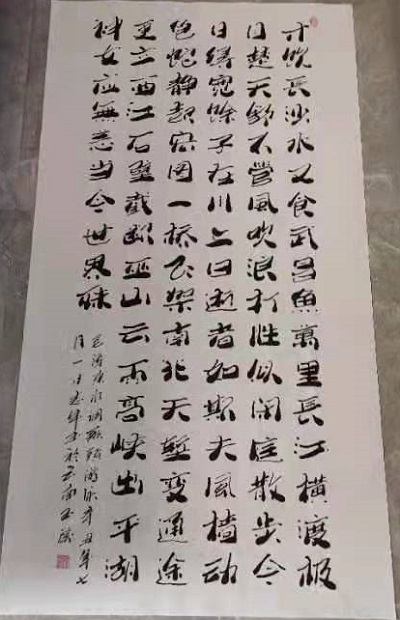 才飲長沙水又食武昌魚萬里長江橫渡極
目楚天舒不管風吹浪打胜似闲庭散步今
日得寬餘子在川上曰逝者如斯夫風檣动
龜蛇静起宏图一桥飞架南北天塹變通途
更立西江石壁截断巫山云雨高峡出平湖
神女应無恙当今世界殊
毛澤東水调歌頭游泳辛丑年七
月一日書於云南玉溪